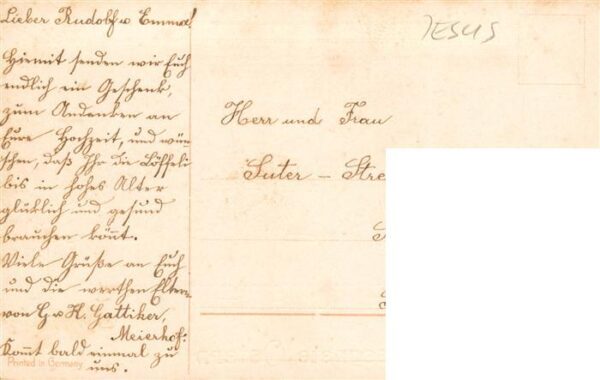 Lieber Rudolf u Emma!
Hiermit senden wir Euch
endlich ein Geschenk,
zum Andenken an
Eure Hochzeit, und wün-
schen, daß Ihr die Löffeli
bis in hohes Alter
glüklich und gesund
brauchen könnt.
Viele Grüße an Euch
und die werthen Eltern
von G u H. Hattiker,
Meierhof.
Kommt bald einmal zu
uns.
Printed in Germany
JESUS
Herr und Frau
Suter - Stre